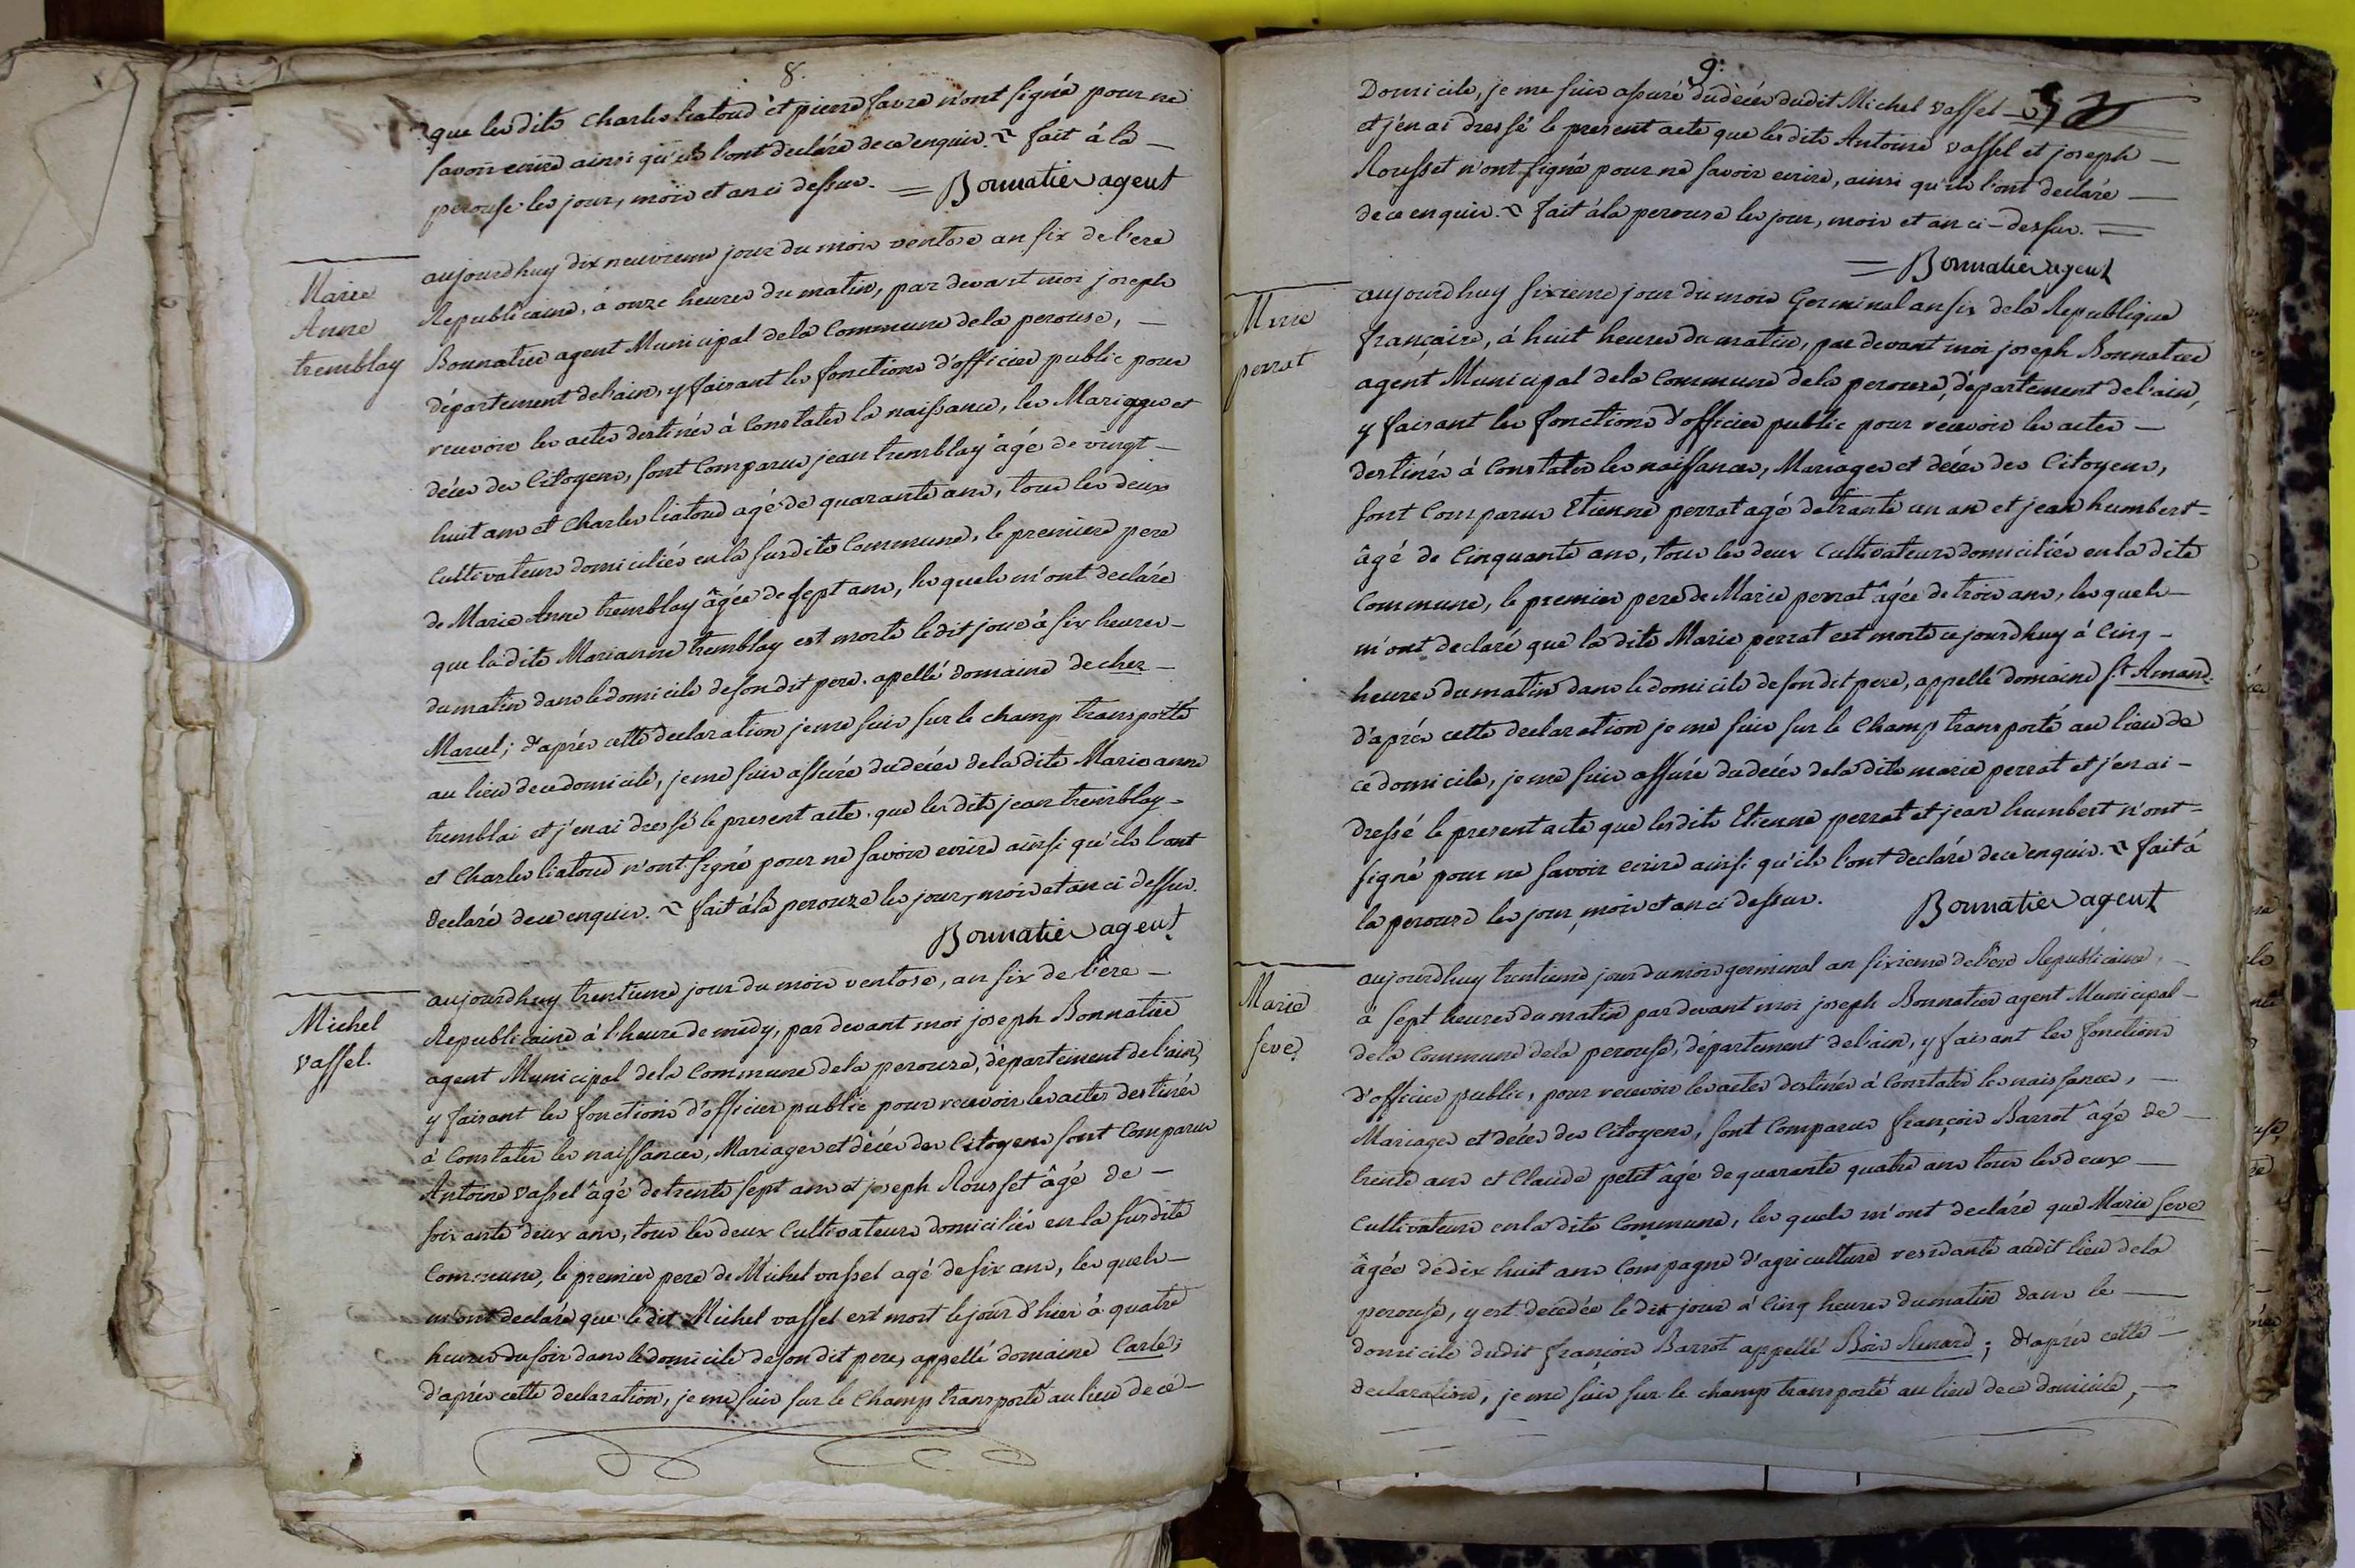 8.
que les dits Charles liatoud et pierre favre n'ont signé pour ne
savoir ecrire ainsi qu'ils l'ont declaré de ce enquis. ~ fait à la —
perouse les jour, mois et an ci dessus. = Bonnatier agent
Marie
Anne
tremblay
aujourdhuy dix neuvieme jour du mois ventose an six de l'ere
Republicaine, à onze heures du matin, par devant moi joseph
Bonnatier agent Municipal de la Commune de la perouse, —
département de l'ain, y faisant les fonctions d'officier public pour
recevoir les actes destinés à Constater la naissance, les Mariages et
décès des Citoyens, sont Comparus jean tremblay âgé de vingt —
huit ans et Charles liatoud agé de quarante ans, tous les deux
Cultivateurs domiciliés en la susdite Commune, le premiere pere
de Marie Anne tremblay âgée de sept ans, les quels m'ont declaré
que la dite Marianne tremblay est morte le dit jour à six heures —
du matin dans le domicile de son dit pere. apellé domaine de chez —
Marcel; d'après cette declaration je me suis sur le champ transporté
au lieu de ce domicile, je me suis assuré du decès de la dite Marie anne
tremblai et j'en ai dressé le present acte. que les dits jean tremblay —
et Charles liatoud n'ont signé pour ne savoir ecrire ainsi qu'ils l'ont
declaré de ce enquis. ~ fait à la perouze les jour, mois et an ci dessus.
Bonnatier agent
Michel
vassel.
aujourdhuy trentieme jour du mois ventose, an six de l'ère —
Republicaine à l'heure de midy, par devant moi joseph Bonnatier
agent Municipal de la Commune de la perouse, département de l'ain,
y faisant les fonctions d'officier public pour recevoir les actes destinés
à Constater les naissances, Mariages et décès des Citoyens sont Comparus
Antoine vassel âgé de trente sept ans et joseph Rousset âgé de —
soixante deux ans, tous les deux Cultivateurs domiciliés en la susdite
Commune, le premier pere de Michel vassel agé de six ans, les quels —
m'ont declaré que le dit Michel vassel est mort le jour d'hier à quatre
heures du soir dans le domicile de son dit pere, appellé domaine Carle;
d'après cette declaration, je me suis sur le Champ transporté au lieu de ce —
9.
Domicile, je me suis assuré du decès dudit Michel vassel —
et j'en ai dressé le present acte que les dits Antoine vassel et joseph —
Rousset n'ont signé pour ne savoir ecrire, ainsi qu'ils l'ont declaré —
de ce enquis. ~ fait à la perouse les jour, mois et an ci - dessus. =
= Bonnatier agent
Marie
perrat
aujourdhuy sixieme jour du mois Germinal an six de la Republique
française, à huit heures du matin, par devant moi joseph Bonnatier
agent Municipal de la Commune de la perouse, département de l'ain,
y faisant les fonctions d'officier public pour recevoir les actes —
destinés à Constater les naissances, Mariages et décès des Citoyens,
sont Comparus Etienne perrat agé de trante un an et jean humbert =
âgé de Cinquante ans, tous les deux Cultivateurs domiciliés en la dite
Commune, le premier pere de Marie perrat âgée de trois ans, les quels —
m'ont declaré que la dite Marie perrat est morte ce jourdhuy à Cinq —
heures du matin dans le domicile de son dit pere, appellé domaine St. Amand.
d'après cette declaration je me suis sur le Champ transporté au lieu de
ce domicile, je me suis assuré du decès de la dite marie perrat et j'en ai —
dressé le present acte que les dits Etienne perrat et jean humbert n'ont =
signé pour ne savoir ecrire ainsi qu'ils l'ont declaré de ce enquis. ~ fait à
la perouse les jour, mois et an ci dessus. Bonnatier agent
Marie
seve.
aujourdhuy trentieme jour du mois germinal an sixieme de l'ere Republicaine, —
à sept heures du matin par devant moi joseph Bonnatier agent Municipal —
de la Commune de la perouse, département de l'ain, y faisant les fonctions
d'officier public, pour recevoir les actes destinés à Constater les naissances, —
Mariages et décès des Citoyens, sont Comparus françois Barrot âgé de —
trente ans et Claude petit âgé de quarante quatre ans tous les deux —
Cultivateurs en la dite Commune, les quels m'ont declaré que Marie seve
âgée de dix huit ans Compagne d'agriculture residante audit lieu de la
perouse, y est decedée le dit jour à Cinq heures du matin dans le —
domicile dudit françois Barrot appellé Bois Renard; d'après cette —
declaration, je me suis sur le champ transporté au lieu de ce domicile, —